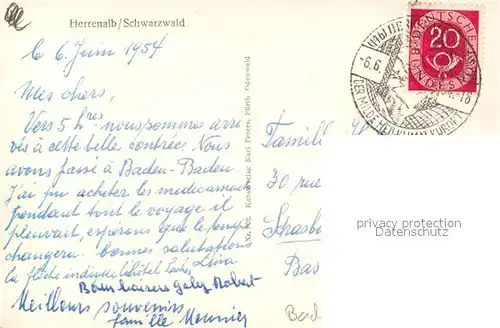 Herrenalb/Schwarzwald
le 6 Juin 1954
Mes chers,
Vers 5 hres nous sommes arri
vés à cette belle contrée. Nous
avons passé à Baden-Baden
J'ai pu acheter les medicaments
pendant tout le voyage il
pleuvait, esperons que le temps
changera. bonnes salutations
la flèche indique l'hôtel
Bons baisers Gaby Robert
Meilleurs souvenirs
famille Meunier
Kunstverlag Karl Peters, Fürth Odenwald
Famille
30 rue
Strasbo
Bas
Bad
DEUTSCHE
BUNDESPOST
20
6.6.
privacy protection
Datenschutz